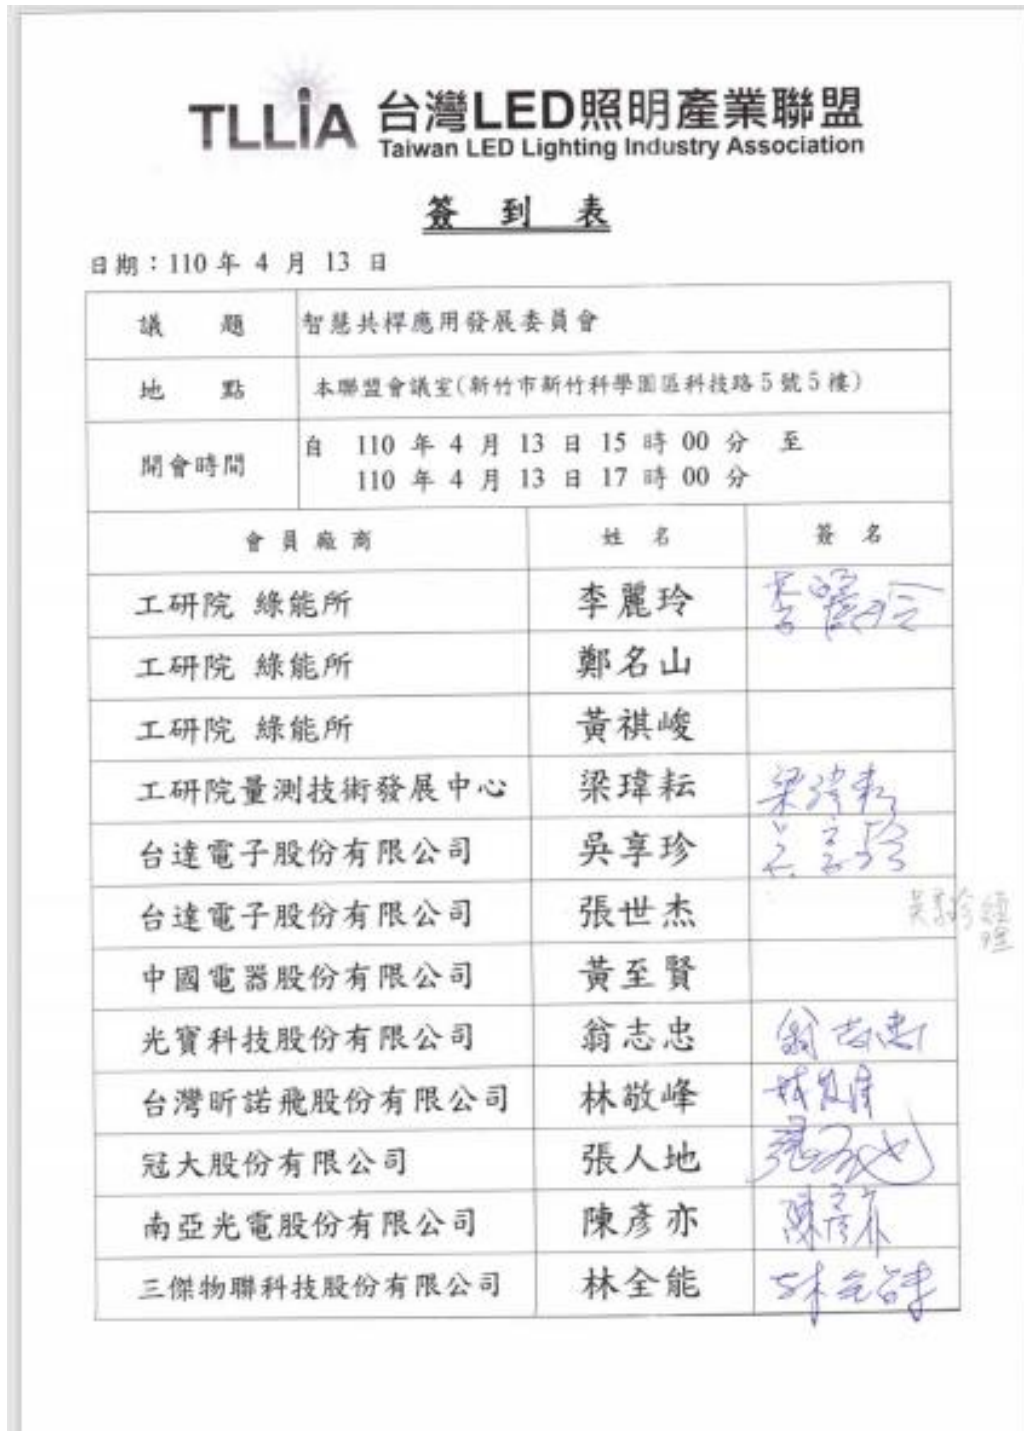 TLLiA 台灣LED照明產業聯盟
Taiwan LED Lighting Industry Association
簽 到 表
日期：110 年 4 月 13 日
議 題 智慧共桿應用發展委員會
地 點 本聯盟會議室(新竹市新竹科學園區科技路5號5樓)
開會時間 自 110 年 4 月 13 日 15 時 00 分 至
110 年 4 月 13 日 17 時 00 分
會員廠商 姓 名 簽 名
工研院 綠能所 李麗玲 李麗玲
工研院 綠能所 鄭名山
工研院 綠能所 黃祺峻
工研院量測技術發展中心 梁瑋耘 梁瑋耘
台達電子股份有限公司 吳享珍 吳享珍
台達電子股份有限公司 張世杰 吳享珍 經理
中國電器股份有限公司 黃至賢
光寶科技股份有限公司 翁志忠 翁志忠
台灣昕諾飛股份有限公司 林敬峰 林敬峰
冠大股份有限公司 張人地 張人地
南亞光電股份有限公司 陳彥亦 陳彥亦
三傑物聯科技股份有限公司 林全能 林全能